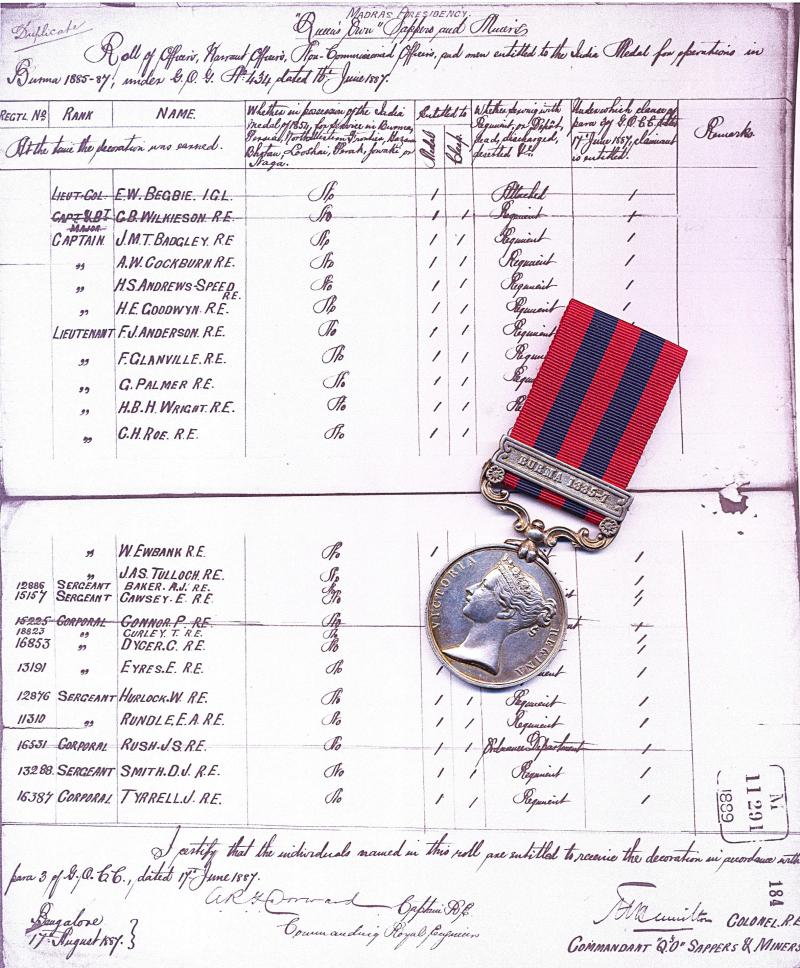 MADRAS PRESIDENCY.
Duplicate
"Queen's Own" Sappers and Miners
Roll of Officers, Warrant Officers, Non-Commissioned Officers, and men entitled to the India Medal for operations in
Burma 1885-87, under G.O.G. No. 434, dated 10th June 1887.
REGTL Nº RANK NAME. Whether in possession of the India medal of 1854, for service in Burma, Persia, North Western Frontier, Bhotan, Looshai, Perak, Jowaki or Naga. Entitled to Medal Clasp Whether serving with Regiment, or Depôt, dead, discharged, deserted &c. Under which clause of para 3 of G.O.C.C. dated 17th June 1887, claimant is entitled. Remarks
At the time the decoration was earned.
LIEUT-COL. E.W. BEGBIE. I.G.L. No 1 Attached 1
CAPT & BT MAJOR G.B. WILKIESON. R.E. No 1 1 Regiment 1
CAPTAIN J.M.T. BADGLEY. R.E No 1 1 Regiment 1
" A.W. COCKBURN R.E. No 1 1 Regiment 1
" H.S. ANDREWS-SPEED R.E. No 1 1 Regiment 1
" H.E. GOODWYN. R.E. No 1 1 Regiment 1
LIEUTENANT F.J. ANDERSON. R.E. No 1 1 Regiment
" F. GLANVILLE. R.E. No 1 1
" G. PALMER R.E. No 1 1
" H.B.H. WRIGHT. R.E. No 1 1
" G.H. ROE. R.E. No 1 1
BURMA 1885-7
" W. EWBANK R.E. No 1
" JAS. TULLOCH. R.E. No
12886 SERGEANT BAKER. A.J. R.E. No
15157 SERGEANT CAWSEY. E. R.E No
15225 CORPORAL CONNOR. P. R.E. No
18823 " CURLEY. T. R.E. No
16853 " DYCER. C. R.E. No
13191 " EYRES. E. R.E. No
VICTORIA REGINA
12876 SERGEANT HURLOCK. W. R.E. No 1 1 Regiment 1
11310 " RUNDLE, E.A. R.E. No 1 1 Regiment 1
16531 CORPORAL RUSH. J.S. R.E. No 1 1 Ordnance Department 1
13288. SERGEANT SMITH. D.J. R.E. No 1 1 Regiment 1
16387 CORPORAL TYRRELL. J. R.E. No 1 1 Regiment 1
M
11291
1889
184
I certify that the individuals named in this roll are entitled to receive the decoration in accordance with
para 3 of G.O.C.C., dated 17th June 1887.
Captain R.E.
Commanding Royal Engineers
Bangalore
17th August 1887.
COLONEL. R.E.
COMMANDANT "Q.O" SAPPERS & MINERS